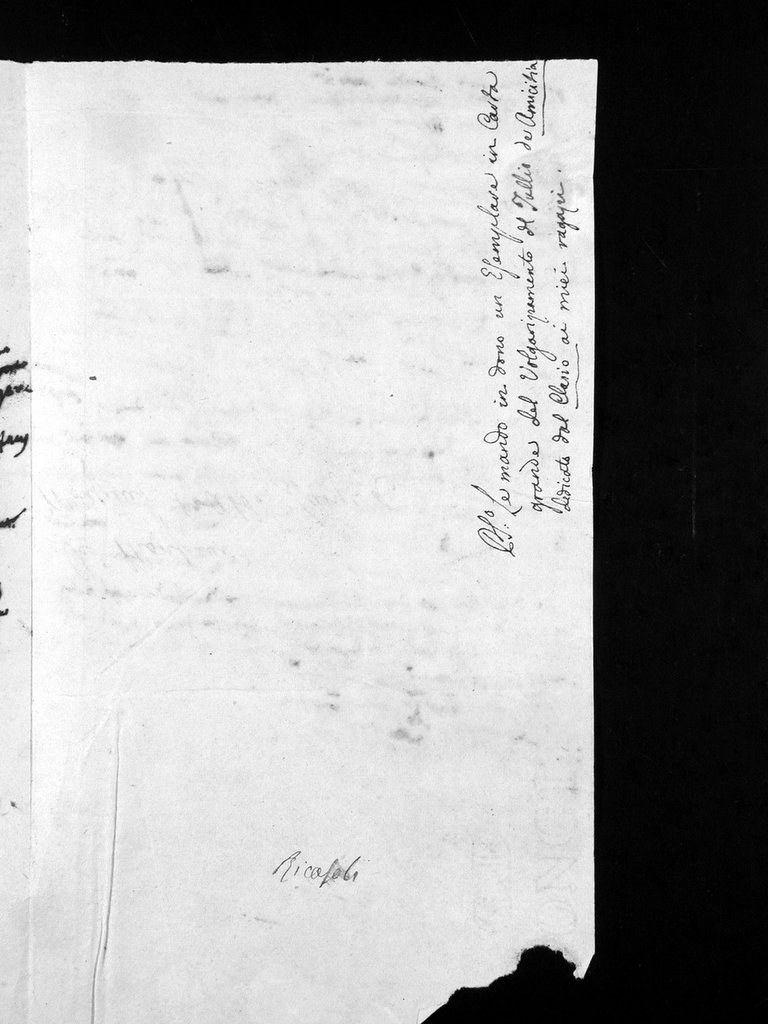 P.S. Le mando in dono un Esemplare in Carta
grande del Volgarizzamento di Tullio de Amicitia
dedicato dal Clasio ai miei ragazzi.
Ricasoli